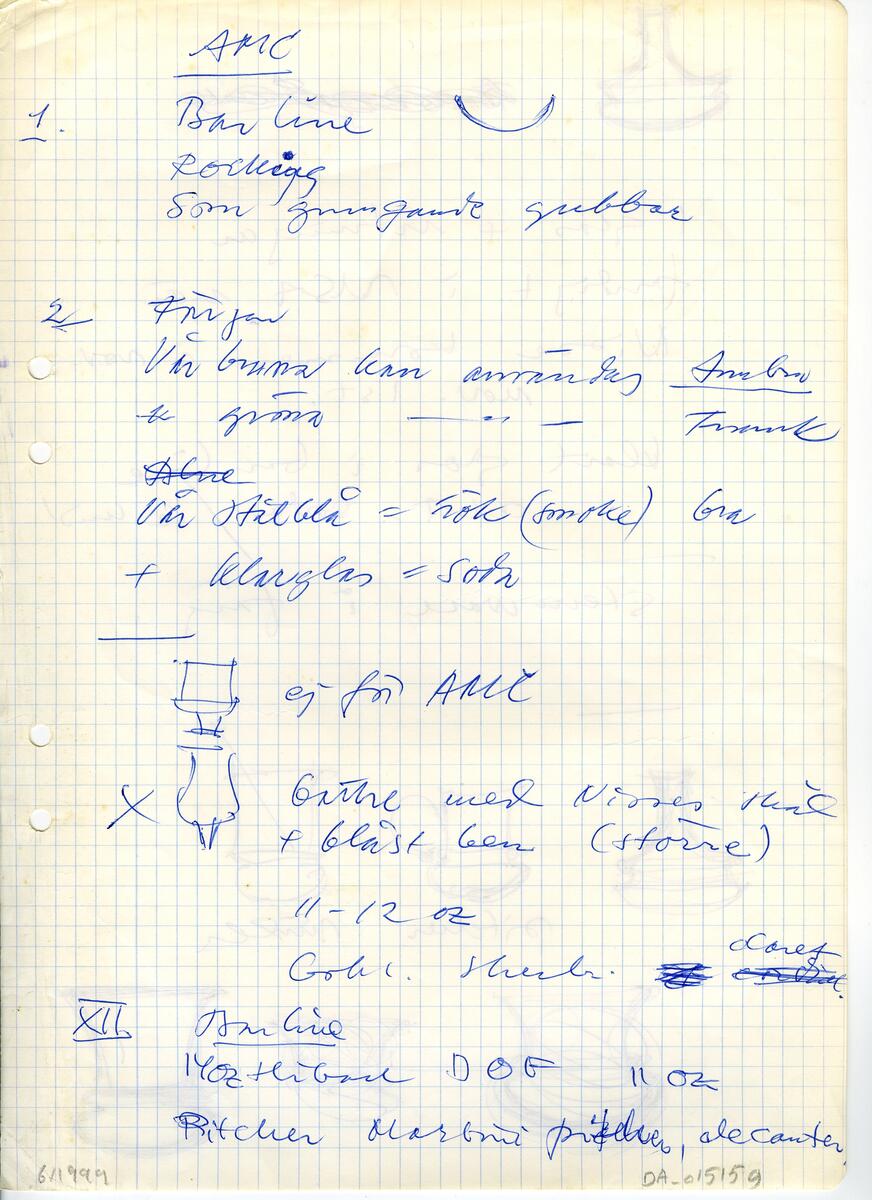 AMC
1. Bar line
Rocking
Som gungande gubbar
2 Färger
Vår bruna kan användas Ambra
+ gröna — " — Frank
Vår stålblå = rök (smoke) bra
+ klarglas = Soda
ej för AMC
X bättre med Nisses skål
+ blåst ben (större)
11-12 oz
Gobl. Sherb. claret
XII. Bar line
14oz Hibal DOF 11 oz
Pitcher Martini pitcher, decanter
6/1999 DA-015159